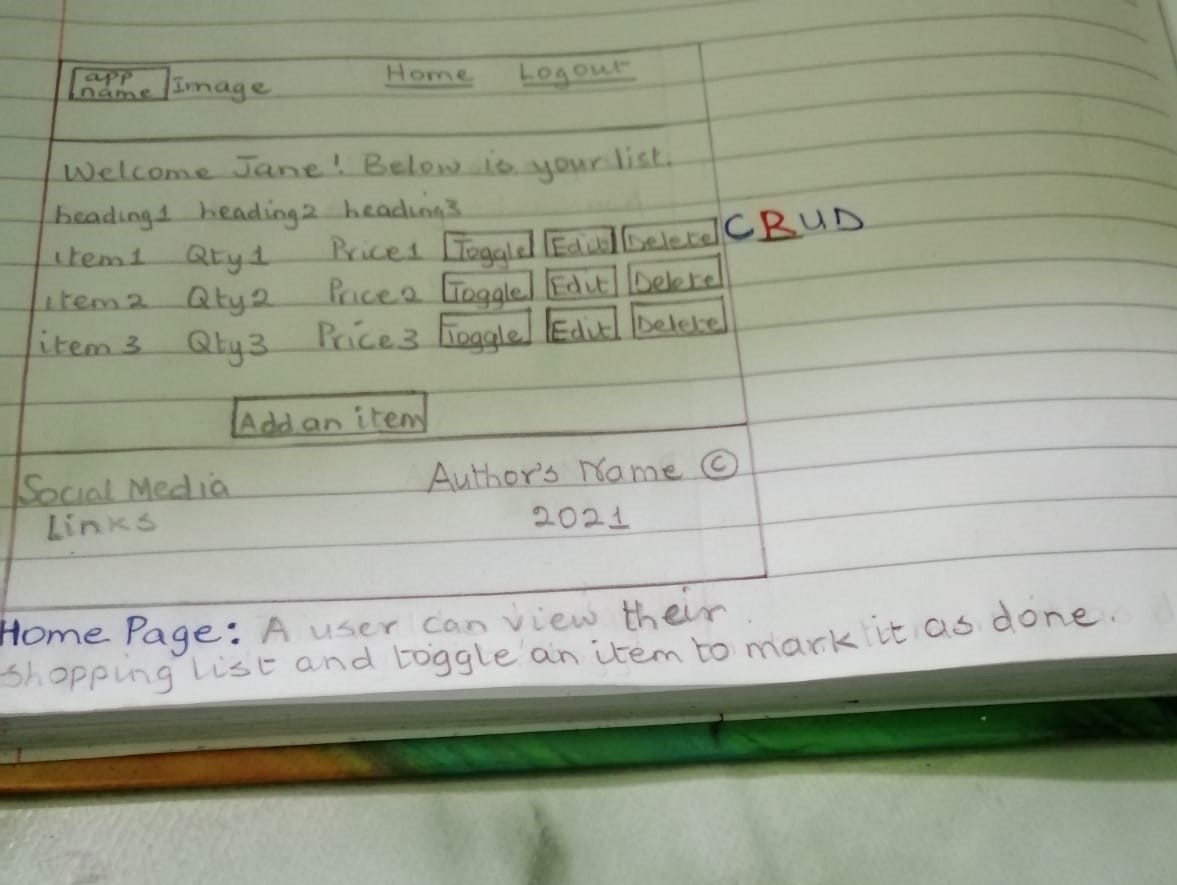 app name Image Home Logout
Welcome Jane! Below is your list.
heading1 heading2 heading3
item1 Qty1 Price1 Toggle Edit Delete CRUD
item2 Qty2 Price2 Toggle Edit Delete
item3 Qty3 Price3 Toggle Edit Delete
Add an item
Social Media Author's Name ©
Links 2021
Home Page: A user can view their
shopping list and toggle an item to mark it as done.